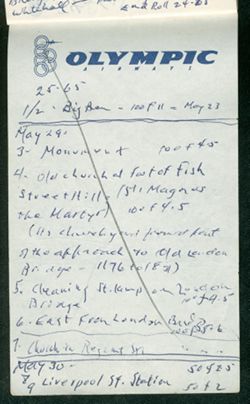 Whitehall
End Roll 24-65
OLYMPIC
AIRWAYS
25-65
1/2 - Big Ben - 100 f 11 - May 23
May 29.
3 - Monument 100 f 4.5
4. Old church at foot of Fish
Street Hill, (St. Magnus
the Martyr) 100 f 4.5
(its churchyard formed part
of the approach to Old London
Bridge - 1176 to 1831)
5. Cleaning St. lamp on London
Bridge 100 f 4.5
6. East from London Bridge
100 f 5.6
7. Church in Regent St.
May 30 - 50 f 2.5
8/9 Liverpool St. Station 50 f 2